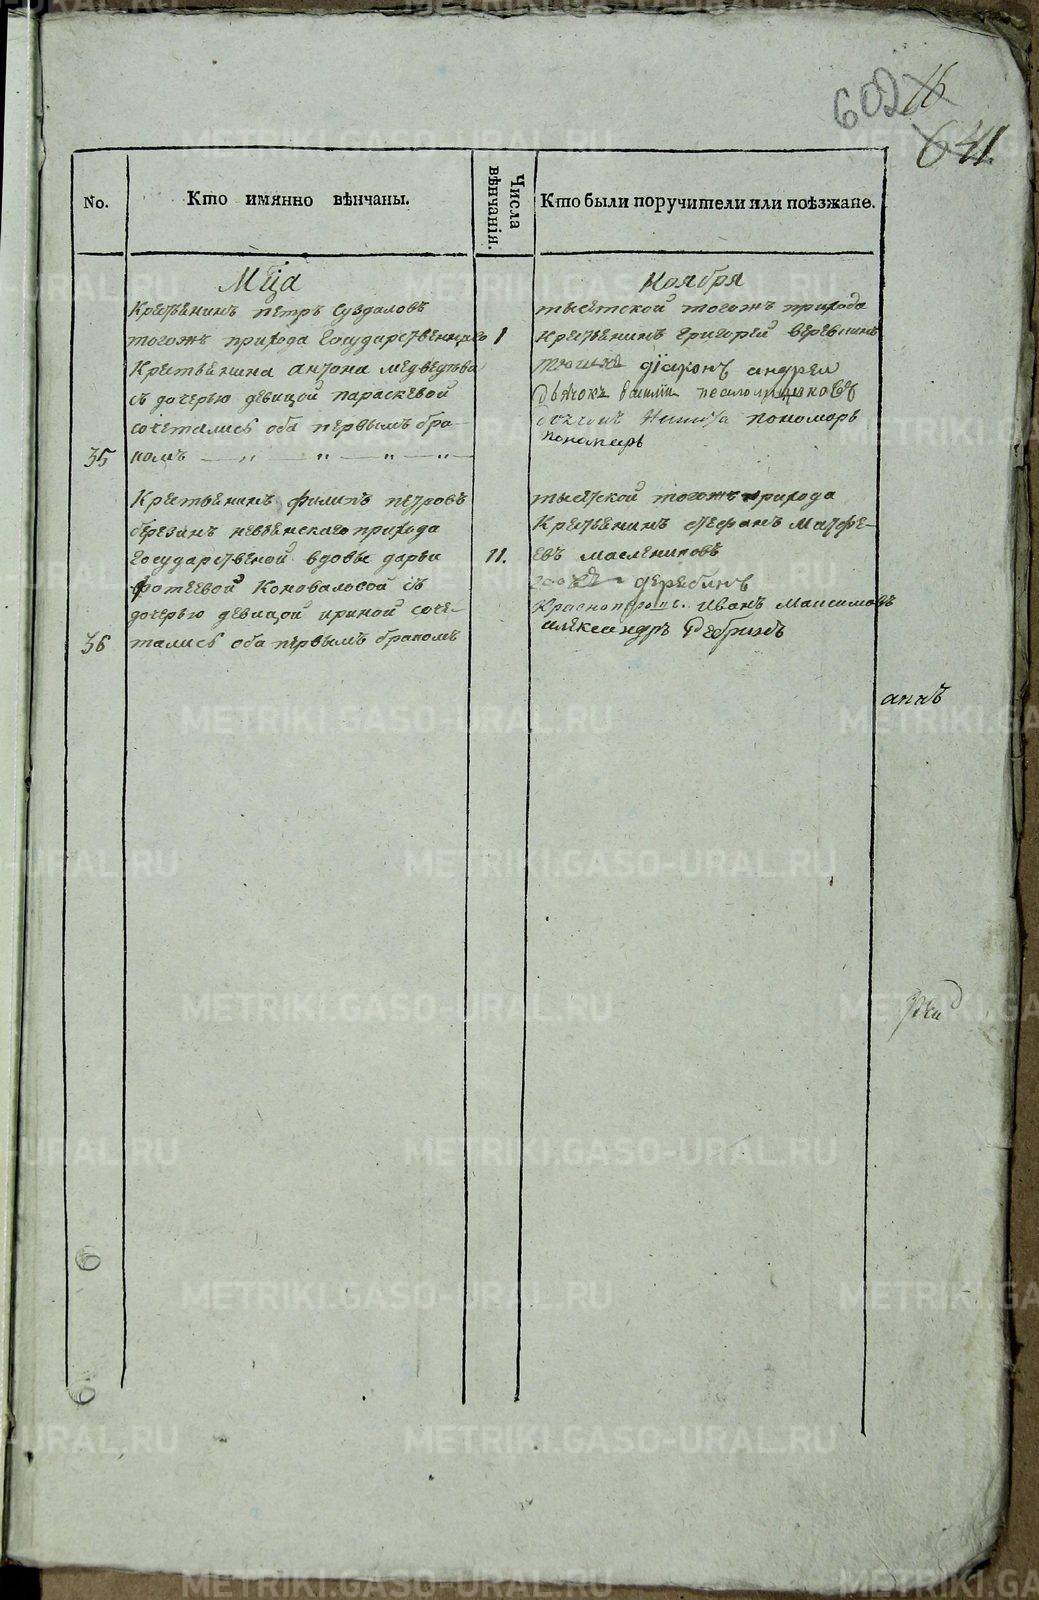 602 16
641.
No.
Кто имянно вѣнчаны.
Числа вѣнчанія.
Кто были поручители или поѣзжане.
Мца
Ноября
Крстьянинъ петръ Суздаловъ
тогожъ прихода Государственнаго
Крстьянина антона медведьва
съ дочерью девицой параскевой
сочетались оба первымъ бра-
35 комъ
1
тысятской тогожъ прихода
Крстьянинъ Григорей
діаконъ андреи
Дьячокъ василіи
пономарь
пономарь
Крстьянинъ филипъ петровъ
березанъ невьянскаго прихода
Государственой вдовы дарьи
фотеевой Коноваловой съ
дочерью девицой ириной соче-
36 тались оба первымъ бракомъ
11.
тысятской тогожъ прихода
Крстьянинъ стефанъ Матфе-
евъ маслениковъ
дерябинъ
Иванъ Максимовъ
александръ
аннъ
METRIKI.GASO-URAL.RU